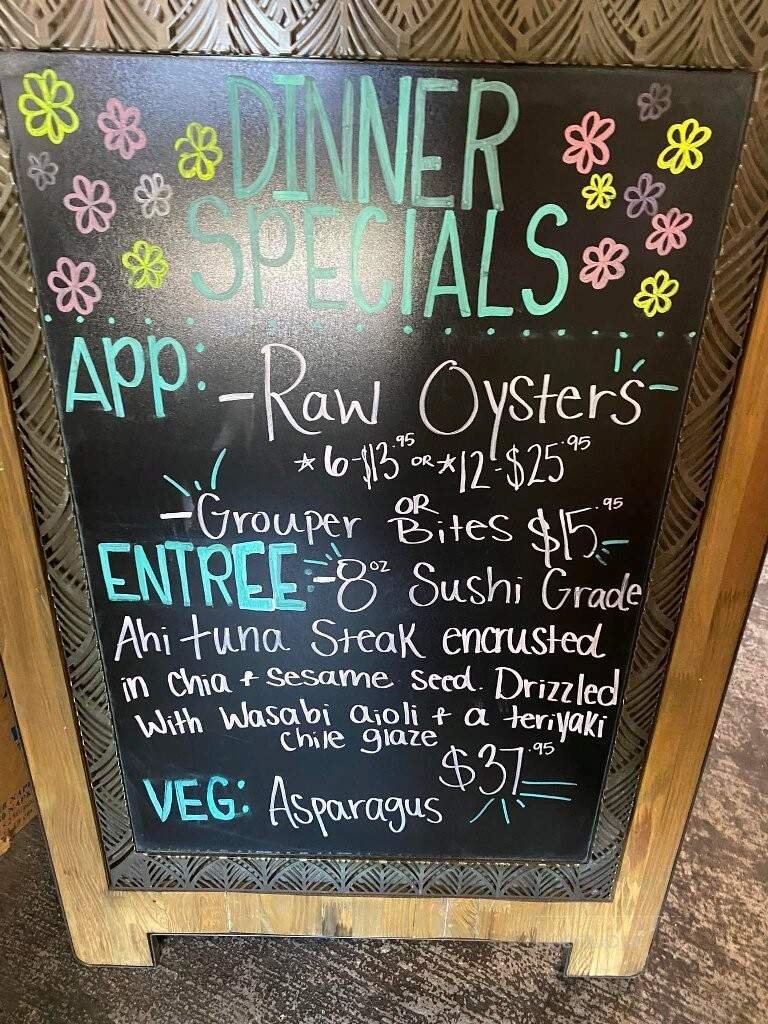 DINNER
SPECIALS
APP: - Raw Oysters -
* 6 - $13.95 OR * 12 - $25.95
OR
- Grouper Bites $15.95 -
ENTREE - 8oz Sushi Grade
Ahi tuna Steak encrusted
in Chia + sesame seed. Drizzled
With Wasabi aioli + a teriyaki
chile glaze
$37.95
VEG: Asparagus